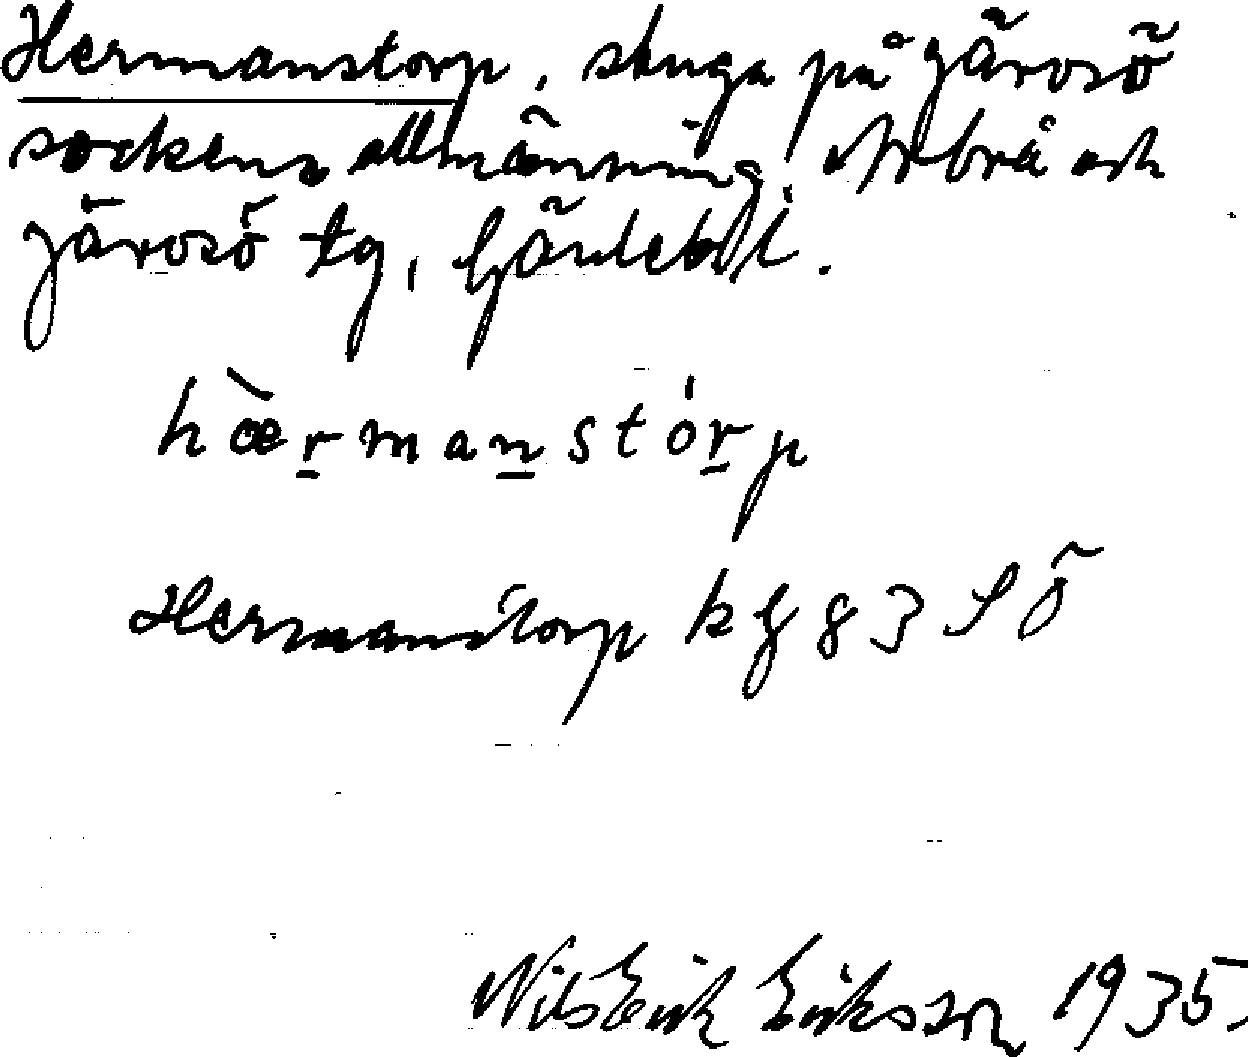 Hermanstorp, stuga på Järvsö
sockens allmänning. Arbrå och
Järvsö tg, Gävlebl.
hærmanstórp
Hermanstorp kg 83 SÖ
Nils Erik Eriksson 1935.